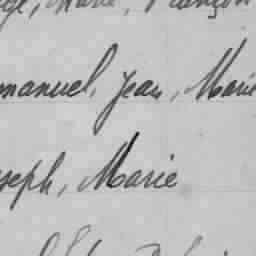 Marie, François
Emmanuel, Jean, Marie
Joseph, Marie